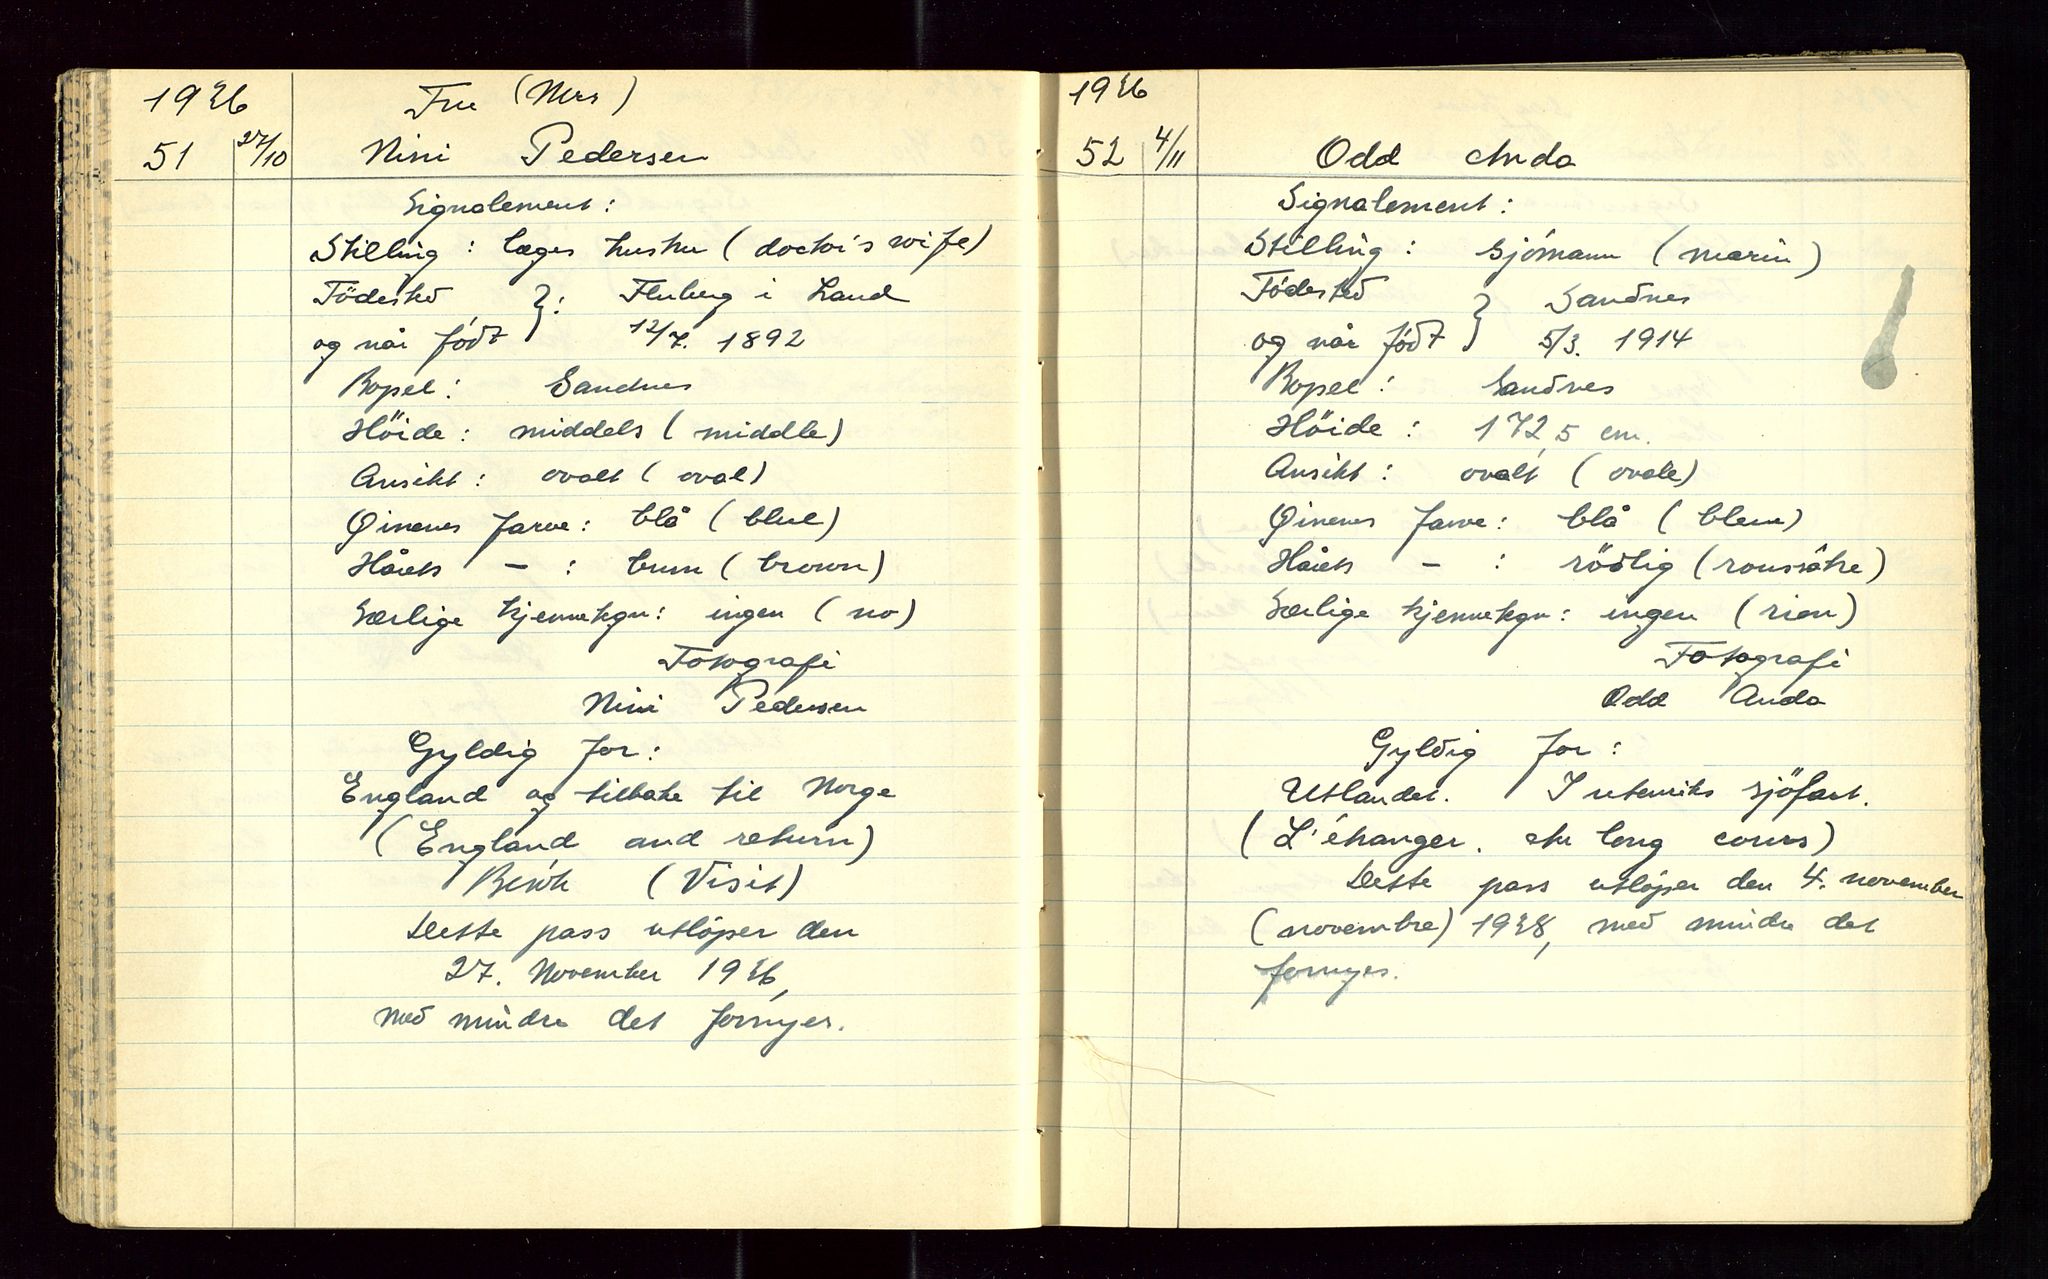 1936
Fru (Mrs)
51 27/10 Nini Pedersen
Signalement:
Stilling: læges hustru (doctor's wife)
Födested }: Fluberg i Land
og når födt 12/7. 1892
Bopel: Sandnes
Höide: middels (middle)
Ansikt: ovalt (oval)
Øinenes farve: blå (blue)
Hårets - : brun (brown)
Særlige kjennetegn: ingen (no)
Fotografi
Nini Pedersen
Gyldig for:
England og tilbake til Norge
(England and return)
Besök (Visit)
Dette pass utlöper den
27. November 1936,
med mindre det fornyes.
1936
52 4/11 Odd Anda
Signalement:
Stilling: sjömann (marin)
Födested } Sandnes
og når födt 5/3. 1914
Bopel: Sandnes
Höide: 172,5 cm.
Ansikt: ovalt (ovale)
Øinenes farve: blå (bleue)
Hårets - : rödlig (roussâtre)
Særlige kjennetegn: ingen (rien)
Fotografi
Odd Anda
Gyldig for:
Utlandet. I utenriks sjöfart.
(L'étranger. Au long cours)
Dette pass utlöper den 4. november
(novembre) 1938, med mindre det
fornyes.